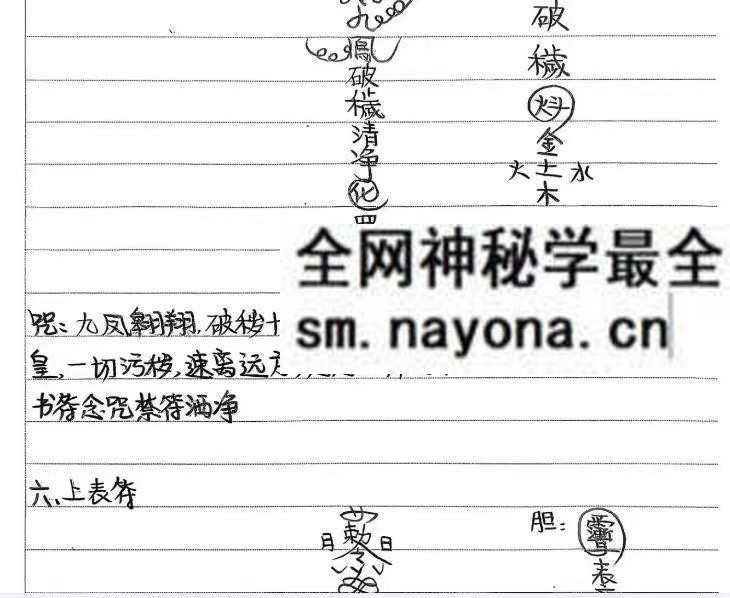 九
鳳
破
穢
清
净
化
四
破
穢
金
火 土 水
木
全网神秘学最全
sm.nayona.cn
咒：九凤翱翔，破秽十
皇，一切污秽，速离远
书符念咒禁符洒净
六、上表符
胆：
敕
日 日
表